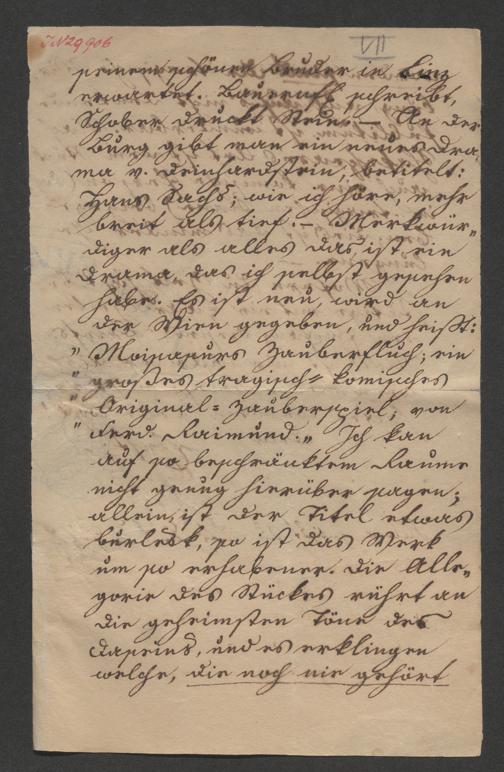 IN 29906
VII
seinem schönen Bruder in Linz
erwartet. Bauernfeld schreibt,
Schober druckt Steine. — An der
Burg gibt man ein neues Dra-
ma v. Deinhardstein, betitelt:
Hans Sachs; wie ich höre, mehr
breit als tief. — Merkwür„
diger als alles das ist ein
Drama, das ich selbst gesehen
habe. Es ist neu, wird an
der Wien gegeben, und heißt:
„ Moisasurs Zauberfluch; ein
„ großes tragisch= komisches
„ Original= Zauberspiel, von
„ Ferd. Raimund.„ Ich kan
auf so beschränktem Raume
nicht genug hierüber sagen;
allein, ist der Titel etwas
burlesk, so ist das Werk
um so erhabener. Die Alle„
gorie des Stückes rührt an
die geheimsten Töne des
Daseins, und es erklingen
welche, die noch nie gehört